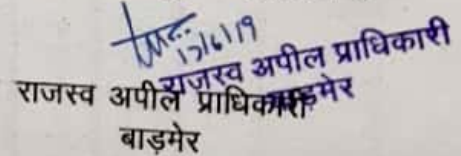 17/6/19
राजस्व अपील प्राधिकारी
बाड़मेर
राजस्व अपील प्राधिकारी
बाड़मेर